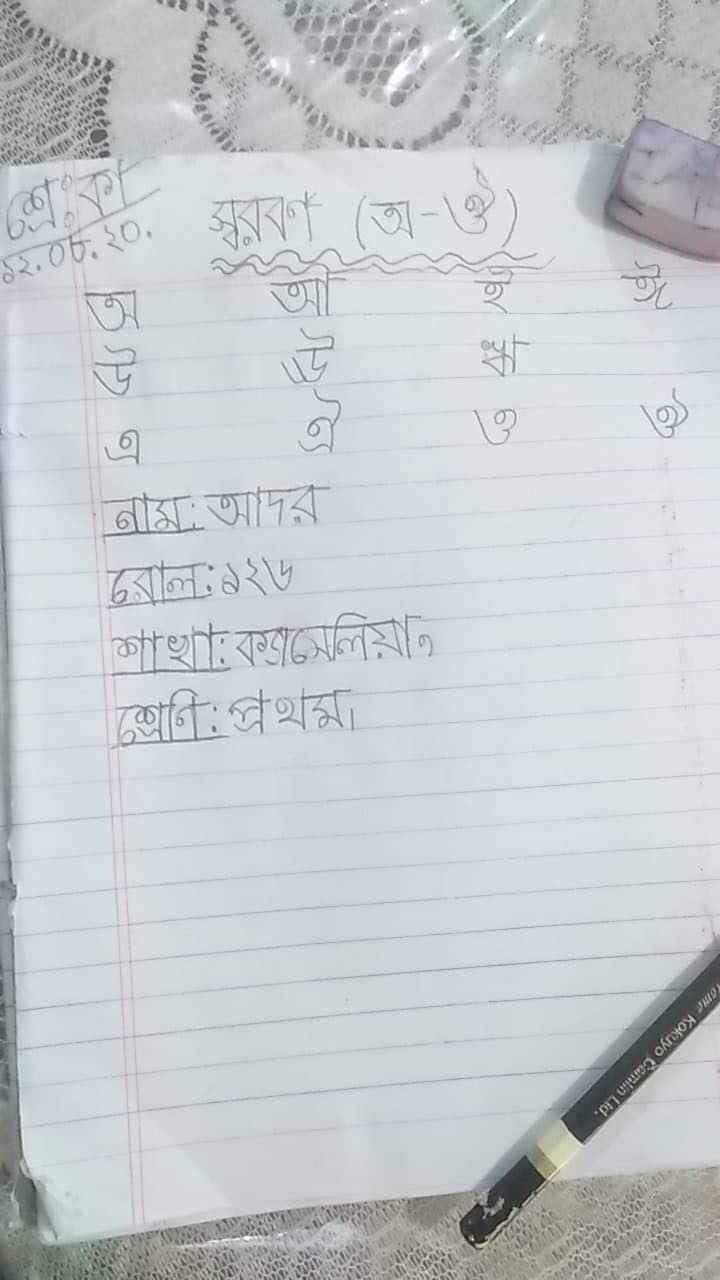 শ্রে:কা
১২.০৮.২০.
স্বরবর্ণ (অ-ঔ)
অ আ ই ঈ
উ ঊ ঋ
এ ঐ ও ঔ
নাম: আদর
রোল: ১২৬
শাখা: ক্যামেলিয়া,
শ্রেণি: প্রথম।
Kokuyo Camlin Ltd.